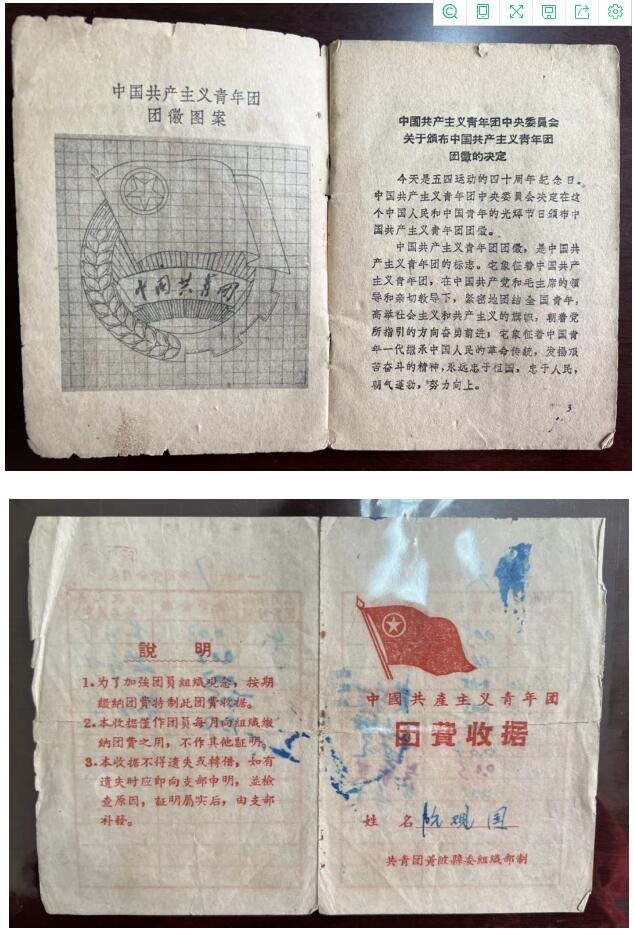 中国共产主义青年团
团徽图案
中国共青团
中国共产主义青年团中央委員会
关于頒布中国共产主义青年团
团徽的决定
今天是五四运动的四十周年紀念日。
中国共产主义青年团中央委員会决定在这
个中国人民和中国青年的光輝节日頒布中
国共产主义青年团团徽。
中国共产主义青年团团徽，是中国共
产主义青年团的标志。它象征着中国共产
主义青年团，在中国共产党和毛主席的領
导和亲切教导下，紧密地团結全国青年，
高举社会主义和共产主义的旗帜，朝着党
所指引的方向奋勇前进；它象征着中国青
年一代继承中国人民的革命传統，发揚艰
苦奋斗的精神，永远忠于祖国，忠于人民，
朝气蓬勃，努力向上。
3
說明
1.为了加強团員組織观念，按期
繳納团費特制此团費收据。
2.本收据僅作团員每月向組織繳
納团費之用，不作其他証明。
3.本收据不得遺失或轉借，如有
遺失时应即向支部申明，並檢
查原因，証明属实后，由支部
补發。
中國共產主义青年团
团費收据
姓名
共青团黃陂縣委組織部制